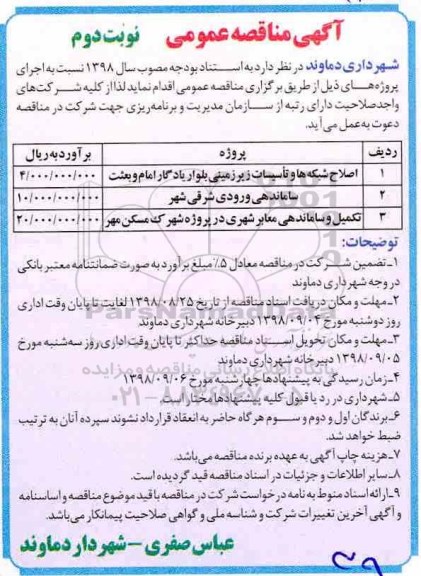 آگهی مناقصه عمومی نوبت دوم
شهرداری دماوند در نظر دارد به استناد بودجه مصوب سال ۱۳۹۸ نسبت به اجرای
پروژه‌های ذیل از طریق برگزاری مناقصه عمومی اقدام نماید لذا از کلیه شرکت‌های
واجد صلاحیت دارای رتبه از سازمان مدیریت و برنامه‌ریزی جهت شرکت در مناقصه
دعوت به عمل می‌آید.
ردیف پروژه برآورد به ریال
۱ اصلاح شبکه‌ها و تأسیسات زیرزمینی بلوار یادگار امام و بعثت ۴/۰۰۰/۰۰۰/۰۰۰
۲ ساماندهی ورودی شرقی شهر ۱۰/۰۰۰/۰۰۰/۰۰۰
۳ تکمیل و ساماندهی معابر شهری در پروژه شهرک مسکن مهر ۲۰/۰۰۰/۰۰۰/۰۰۰
توضیحات:
۱ـ تضمین شرکت در مناقصه معادل ۵٪ مبلغ برآورد به صورت ضمانتنامه معتبر بانکی
در وجه شهرداری دماوند
۲ـ مهلت و مکان دریافت اسناد مناقصه از تاریخ ۱۳۹۸/۰۸/۲۵ لغایت تا پایان وقت اداری
روز دوشنبه مورخ ۱۳۹۸/۰۹/۰۴ دبیرخانه شهرداری دماوند
۳ـ مهلت و مکان تحویل اسناد مناقصه حداکثر تا پایان وقت اداری روز سه‌شنبه مورخ
۱۳۹۸/۰۹/۰۵ دبیرخانه شهرداری دماوند
۴ـ زمان رسیدگی به پیشنهادها چهارشنبه مورخ ۱۳۹۸/۰۹/۰۶
۵ـ شهرداری در رد یا قبول کلیه پیشنهادها مختار است.
۶ـ برندگان اول و دوم و سوم هرگاه حاضر به انعقاد قرارداد نشوند سپرده آنان به ترتیب
ضبط خواهد شد.
۷ـ هزینه چاپ آگهی به عهده برنده مناقصه می‌باشد.
۸ـ سایر اطلاعات و جزئیات در اسناد مناقصه قید گردیده است.
۹ـ ارائه اسناد منوط به نامه درخواست شرکت در مناقصه با قید موضوع مناقصه و اساسنامه
و آگهی آخرین تغییرات شرکت و شناسه ملی و گواهی صلاحیت پیمانکار می‌باشد.
عباس صفری - شهردار دماوند